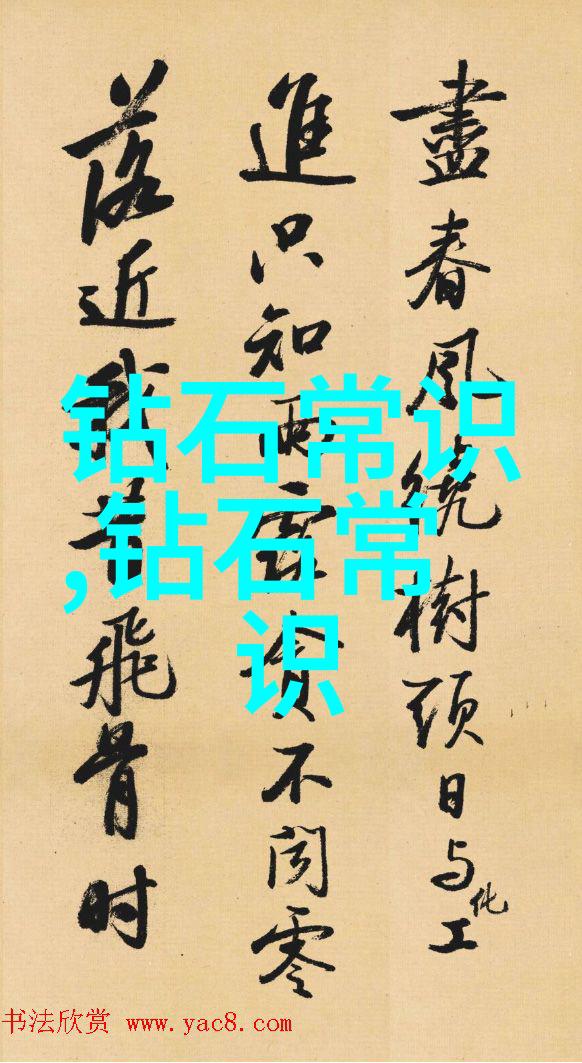 盡春風繞樹頭日与化工
進只知雨露貪不聞零
落近我昔飛骨时
钻石常识
,钻石常
识
书法欣赏 www.yac8.com